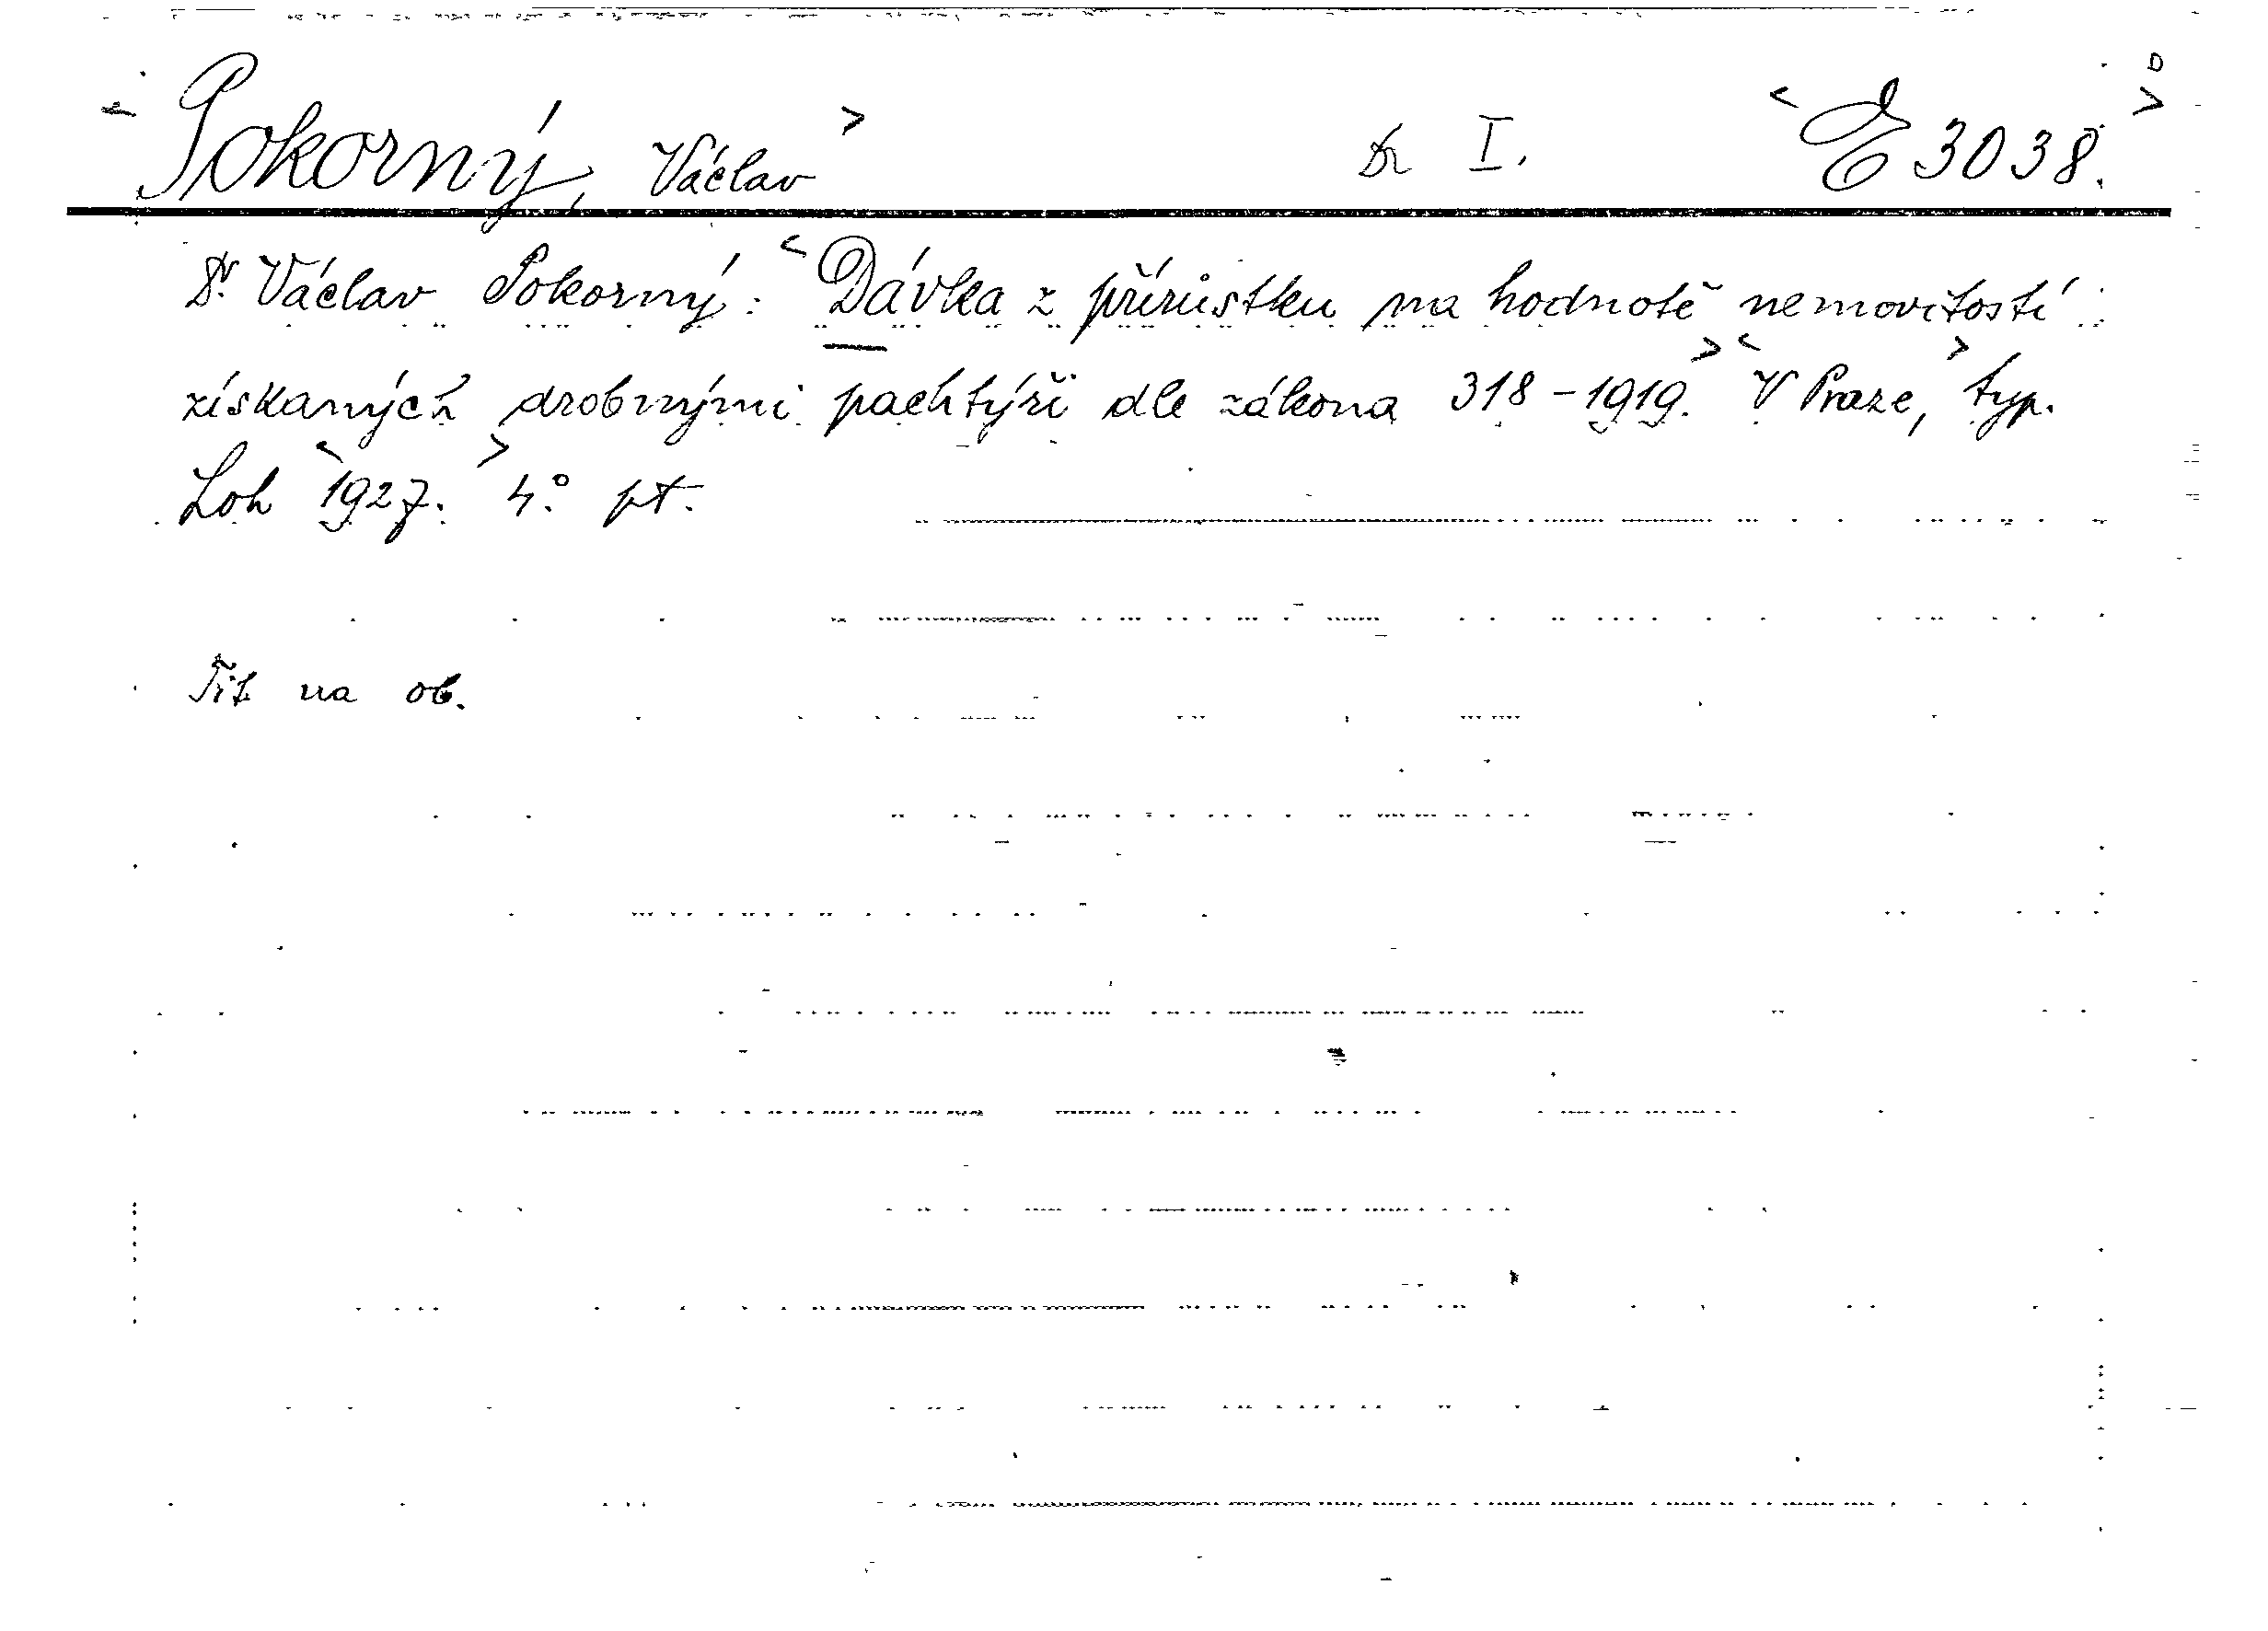 Pokorný, Václav Dr I. E 3038.
Dr. Václav Pokorný: Dávka z přírůstku na hodnotě nemovitostí
získaných drobnými pachtýři dle zákona 318-1919. V Praze, typ.
Loh 1927. 4° pt.
Tit. na ob.